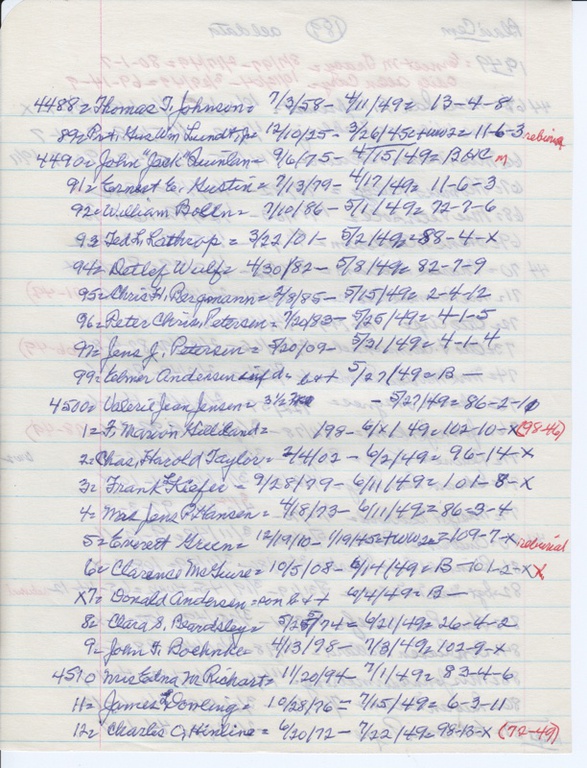 4488= Thomas T. Johnson = 7/3/58 - 4/11/49= 13-4-8
89= Pvt. Gus Wm Lundt, Jr = 12/10/25 - 3/26/45= +WW2= 11-6-3 rebury
4490= John "Jack" Quinlan = 9/6/75 - 4/15/49= B6xC m
91= Ernest E. Gustin = 7/13/79 - 4/17/49= 11-6-3
92= William Bolln = 7/10/86 - 5/1/49= 72-7-6
93= Ted L. Lathrop = 3/22/01 - 5/2/49= 88-4-X
94= Detlef Wulf = 4/30/82 - 5/8/49= 82-7-9
95= Chris H. Bergmann = 2/8/85 - 5/15/49= 2-4-12
96= Peter Chris, Petersen = 7/20/83 - 5/25/49= 4-1-5
97= Jens J. Petersen = 5/20/09 - 5/31/49= 4-1-4
99= Elmer Andersen inf d= b&+ 5/27/49= B —
4500= Valerie Jean Jensen = 3½ - 5/27/49= 86-2-10
1= F. Marion Gilliland = 198 - 6/X/49= 102-10-X (98-46)
2= Chas, Harold Taylor = 2/4/02 - 6/2/49= 96-14-X
3= Frank L Kiefer = 9/28/79 - 6/11/49= 101-8-X
4= Mrs Jens P. Hansen = 4/18/73 - 6/11/49= 86-3-4
5= Everett Green = 12/19/10 - 1/19/45= +WW2= 109-7-X reburial
6= Clarence McGuire = 10/5/08 - 6/14/49= B-101-2-X X
X7= Donald Andersen = son b&+ 6/4/49= B —
8= Clara S. Beardsley = 5/25/74= 6/21/49= 26-4-2
9= John F. Boehnke = 4/13/98 - 7/3/49= 102-9-X
4510 Mrs Edna M. Richart= 11/20/94 - 7/1/49= 83-4-6
11= James L Dowling = 10/28/76 = 7/15/49= 6-3-11
12= Charles O, Hinline = 6/20/72 - 7/22/49= 98-13-X (72-49)